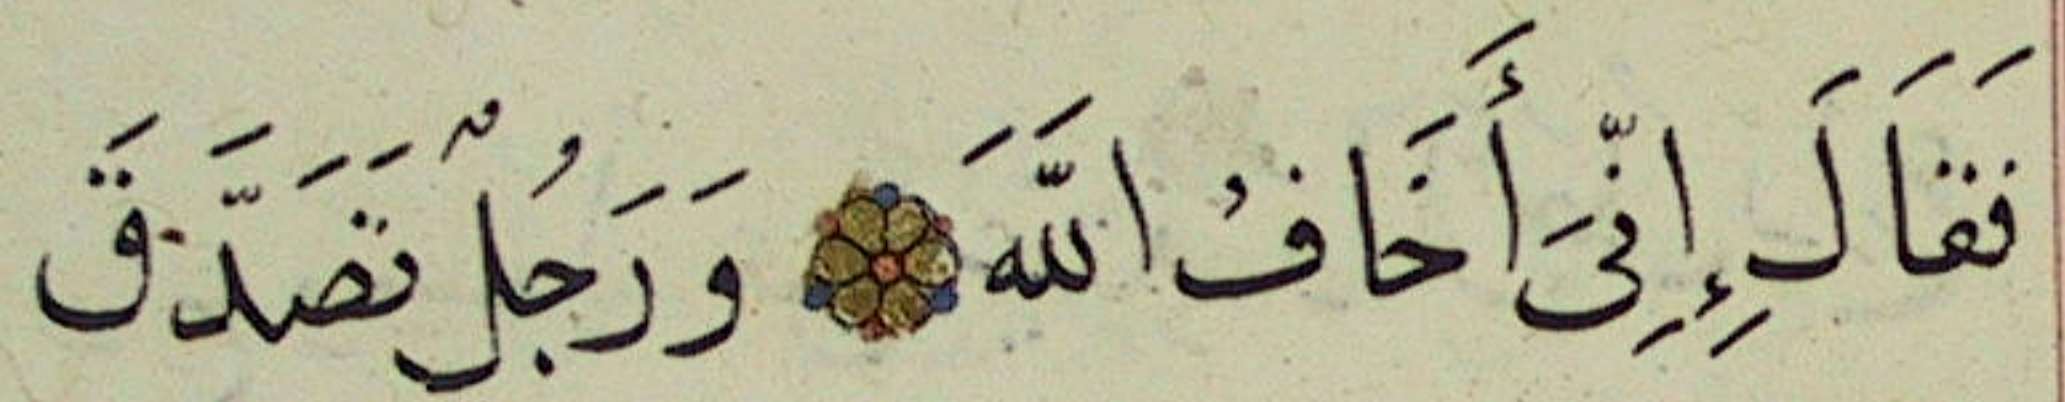 فَقَالَ إِنِّىَ أَخَافُ اللَّهَ وَرَجُلٌ تَصَدَّقَ